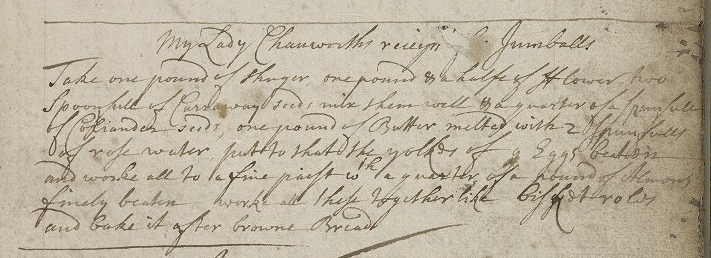 My Lady Chanworths receipt for Jumballs
Take one pound of Shuger, one pound & a halfe of fflower, two
Spoonfull of Carraway seeds mix them well & a quarter of a spunfull
of Coriander seeds, one pound of Butter melted with 2 spunfulls
of rose water put to that the yolkes of 9 Eggs beaten
and worke all to a fine paist wth a quarter of a pound of Almons
finely beaten worke all these together like bisket roles
and bake it after browne Bread